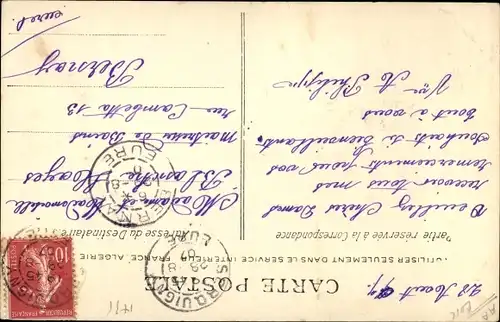 CARTE POSTALE
A UTILISER SEULEMENT DANS LE SERVICE INTERIEUR, FRANCE, ALGERIE
Partie réservée à la Correspondance
Adresse du Destinataire
Veuillez Chères Dames
recevoir tous mes
remerciements pour vos
souhaits si bienveillants
tout à vous
Vve A Philippe
Madame et Mademoiselle
Blanche
Maitresse de Bains
rue Gambetta 13
Bernay
Eure
SERQUIGNY
EURE
BERNAY
EURE
10
REPUBLIQUE FRANÇAISE